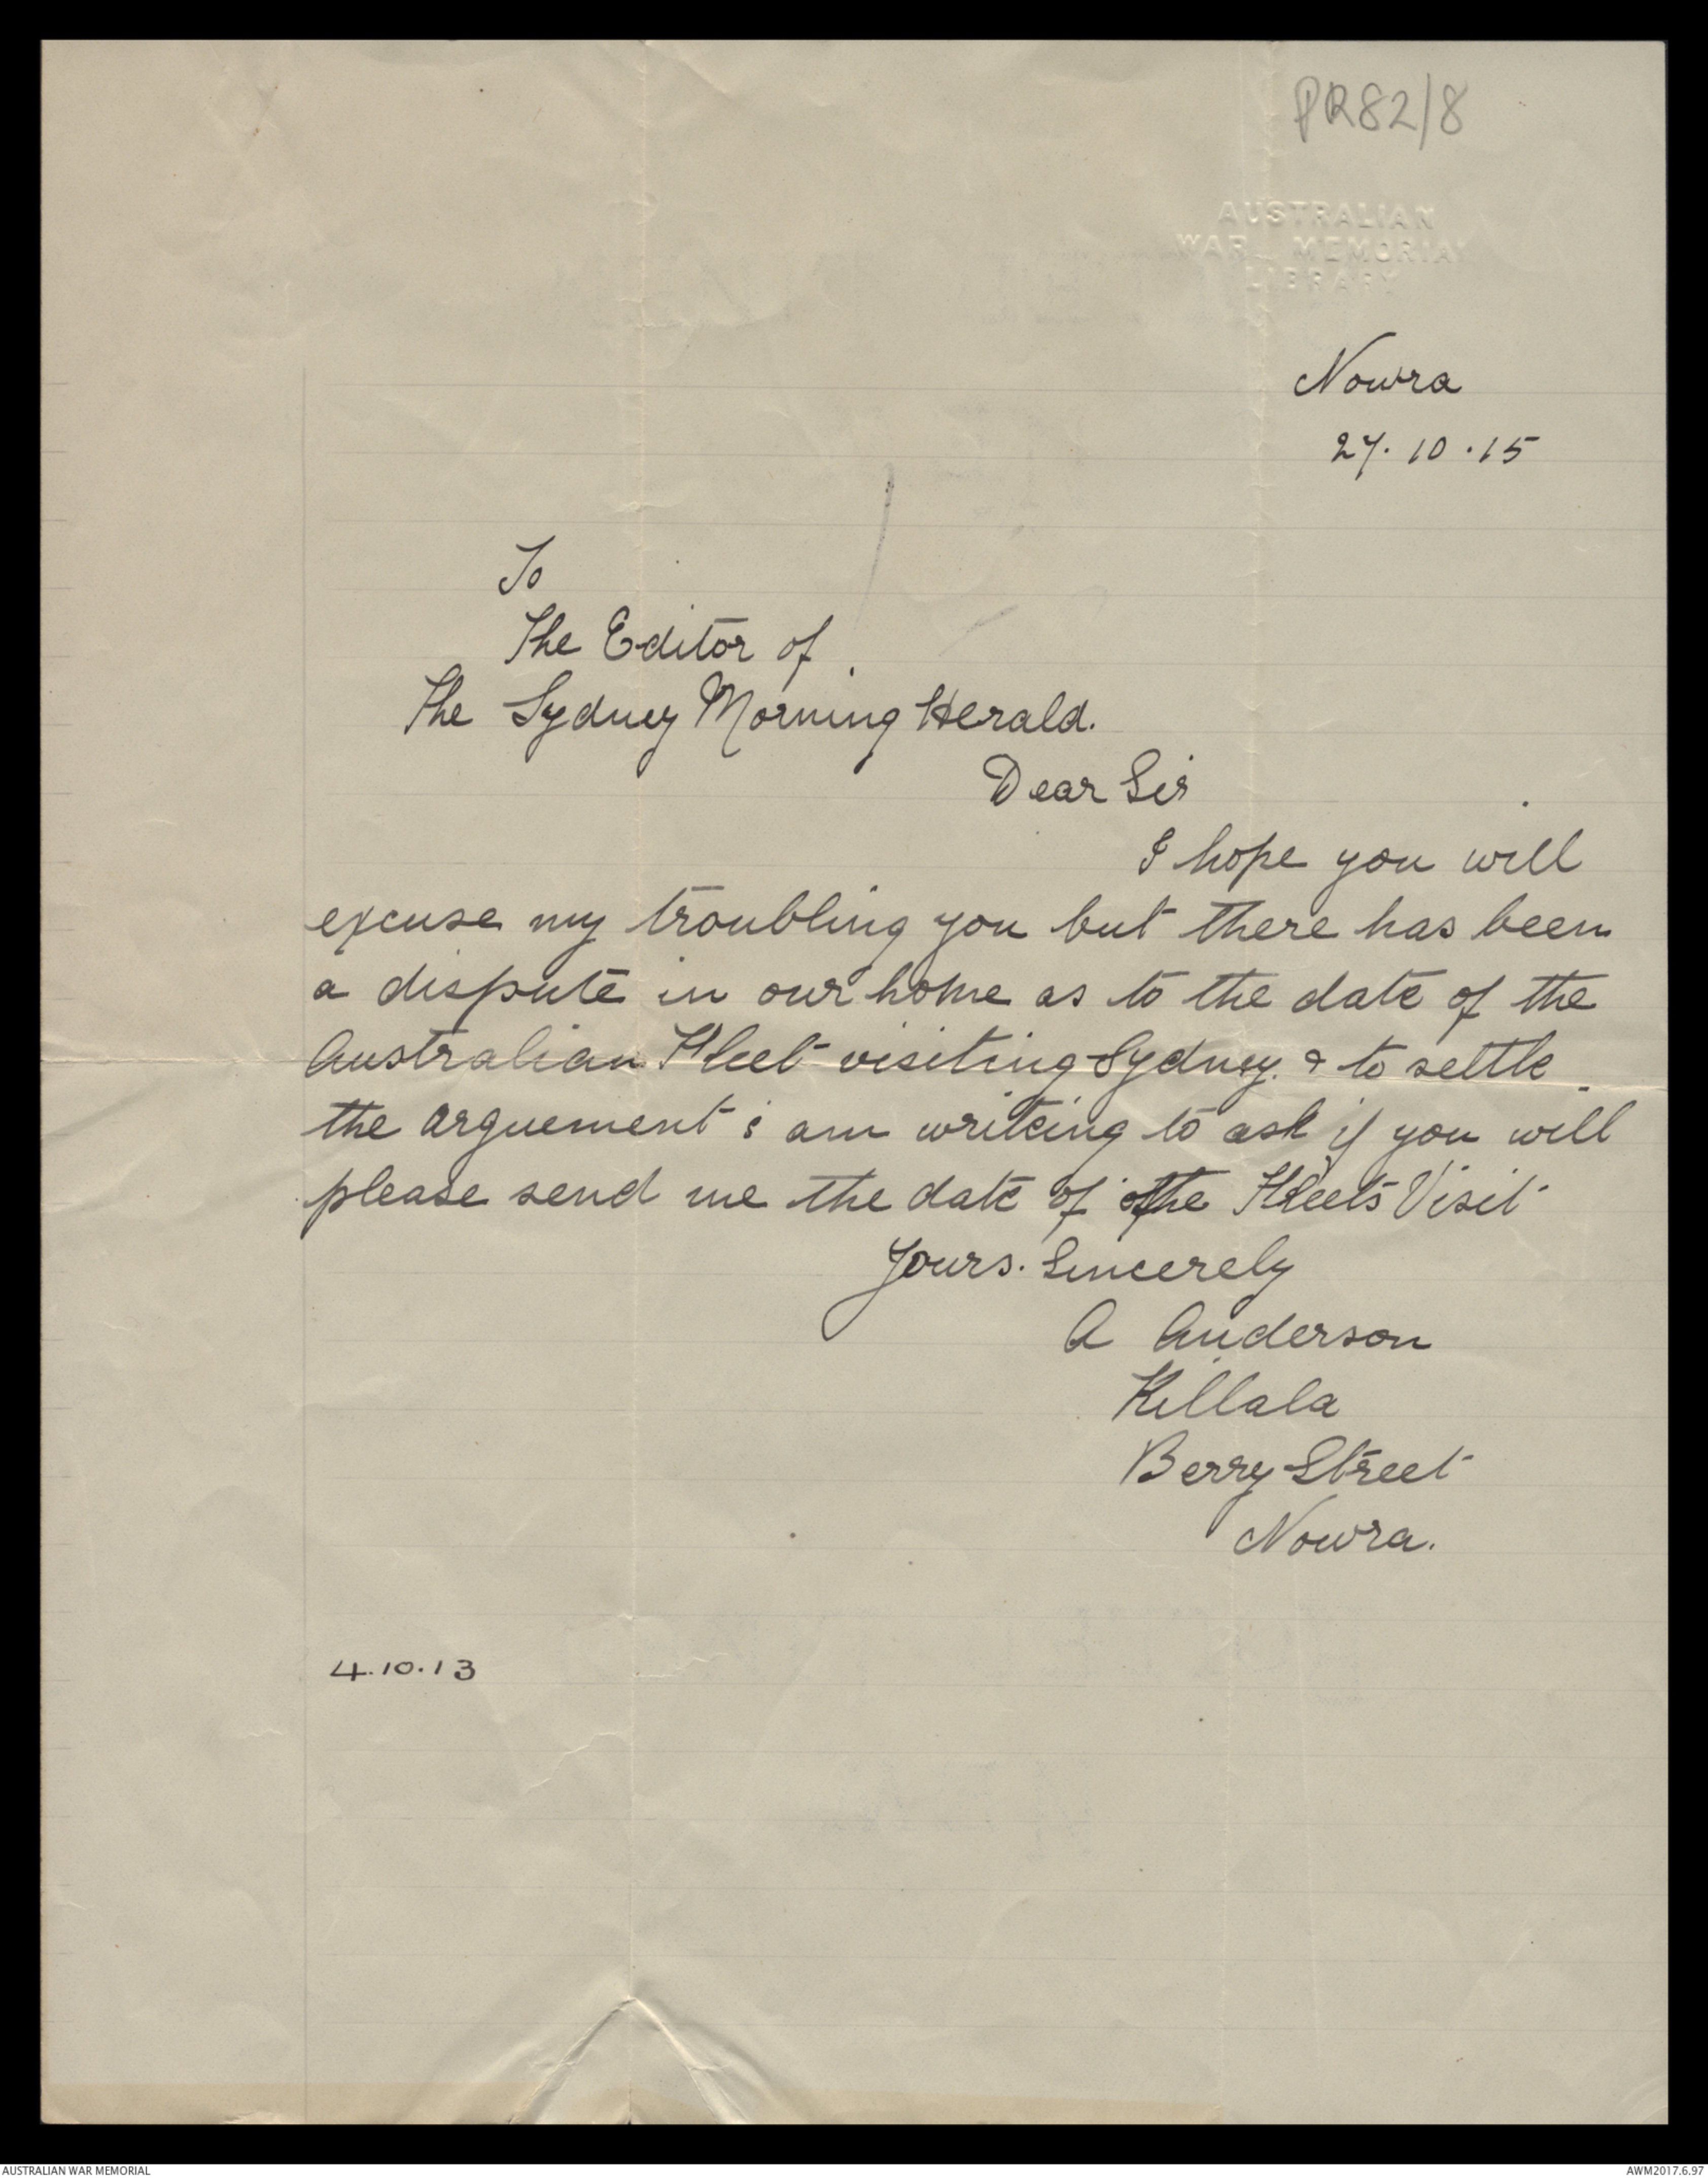 PR82/8
AUSTRALIAN
WAR MEMORIAL
LIBRARY
Nowra
27.10.15
To
The Editor of
The Sydney Morning Herald.
Dear Sir
I hope you will
excuse my troubling you but there has been
a dispute in our home as to the date of the
Australian Fleet visiting Sydney. & to settle
the arguement i am writeing to ask if you will
please send me the date of of the Fleets Visit
Yours. Sincerely
A Anderson
Killala
Berry Street
Nowra.
4.10.13
AUSTRALIAN WAR MEMORIAL
AWM2017.6.97